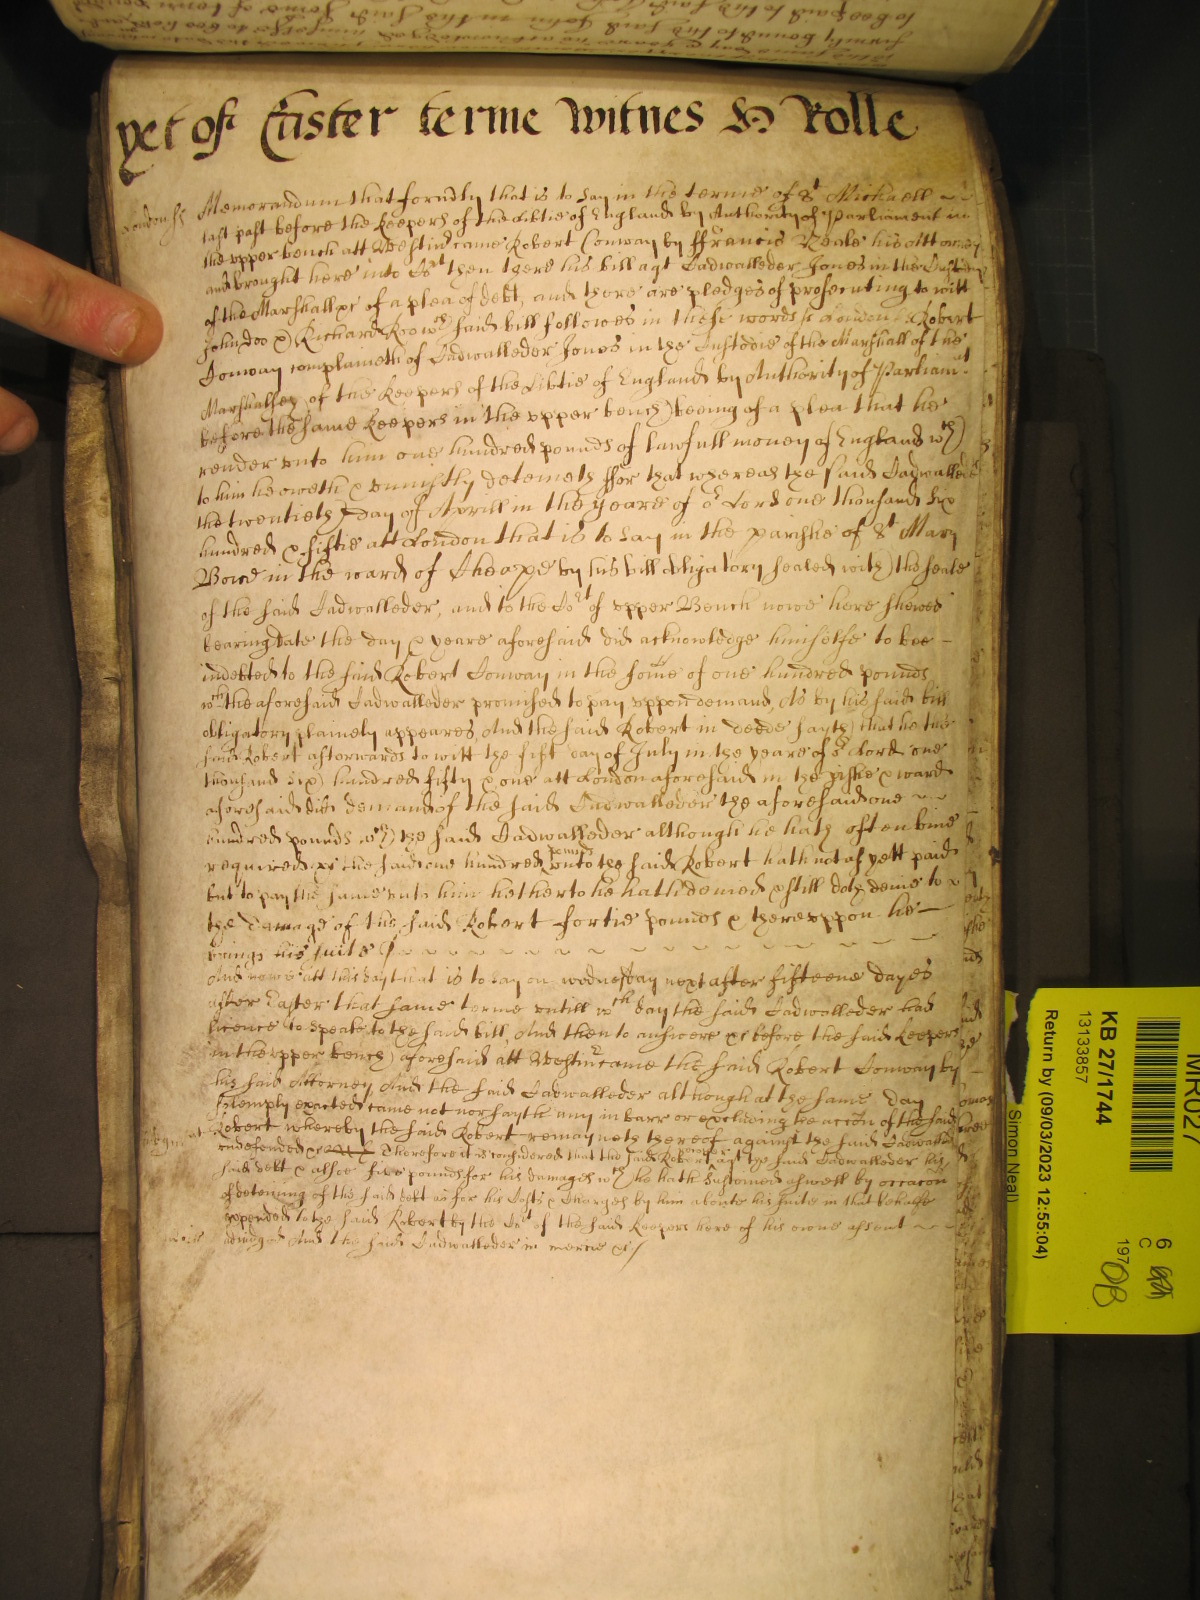 yet of Easter terme Witnes H Rolle
London ss Memorandum that formerly that is to say in the terme of St Michaell
last past before the Keepers of the Libtie of England by Authority of Parliament in
the upper bench att Westm came Robert Conway by ffrancis Neale his Attorney
and brought here into Cort then there his bill agt Cadwalleder Jones in the Custody
of the Marshall &c of a plea of debt, and there are pledges of prosecuting to witt
John doo & Richard Roo wch said bill followes in these words ss London ss Robert
Conway complaineth of Cadwalleder Jones in the Custodie of the Marshall of the
Marshalsey of the Keepers of the Libtie of England by Authority of Parliamt
before the same Keepers in the upper bench beeing of a plea that he
render unto him one hundred pounds of lawfull money of England wch
to him he oweth & uniustly deteineth ffor that whereas the said Cadwalleder
the twentieth day of Aprill in the yeare of or Lord one thousand six
hundred & fiftie att London that is to say in the parishe of St Mary
Bowe in the ward of Cheape by his bill obligatory sealed with the seale
of the said Cadwalleder, and to the Cort of upper Bench nowe here shewed
bearing date the day & yeare aforesaid did acknowledge himselfe to bee
indebted to the said Robert Conway in the some of one hundred pounds
wch the aforesaid Cadwalleder promised to pay uppon demand, As by his said bill
obligatory plainely appeares, And the said Robert in deede sayth that he the
said Robert afterwards to witt the first day of July in the yeare of or Lord one
thousand six hundred fifty & one att London aforesaid in the pishe & ward
aforesaid did demand of the said Cadwalleder the aforesaid one
hundred pounds wch the said Cadwalleder although he hath often bine
required &c the said one hundred pounds unto the said Robert hath not as yett paid
but to pay the same unto him hetherto he hath denied & still doth denie to
the damage of the said Robert fortie pounds & thereuppon he
brings his suite &c
And nowe att this day that is to say on wednesday next after fifteene dayes
after Easter that same terme untill wch day the said Cadwalleder had
licence to speake to the said bill, And then to answere &c before the said Keepers
in the upper bench aforesaid att Westm came the said Robert Conway by
his said Attorney And the said Cadwalleder although at the same day
solemply exacted came not nor sayth any in barr or excluding the accon of the said
Robert whereby the said Robert remayneth thereof against the said Cadwalleder
undefended &c Therefore it is considered that the said Robert recover agt the said Cadwalleder his
said debt & alsoe five pounds for his damages wch he hath susteined aswell by occacon
of deteining of the said debt as for his Costs & Charges by him aboute his suite in that behalfe
expended to the said Robert by the Cort of the said Keepers here of his owne assent
adiudged And the said Cadwalleder in mercie &c
KB 27/1744
13133857
Return by (09/03/2023 12:55:04)
Simon Neal
MR027
6
C
197